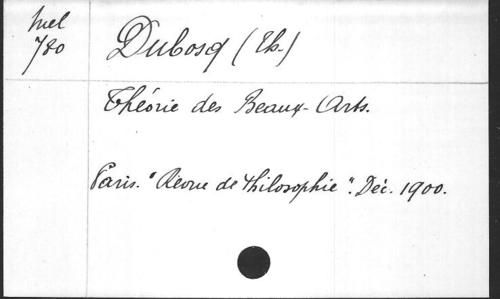 Mel
780
Dubosq (Th.)
Théorie des Beaux-Arts.
Paris. "Revue de Philosophie". Déc. 1900.